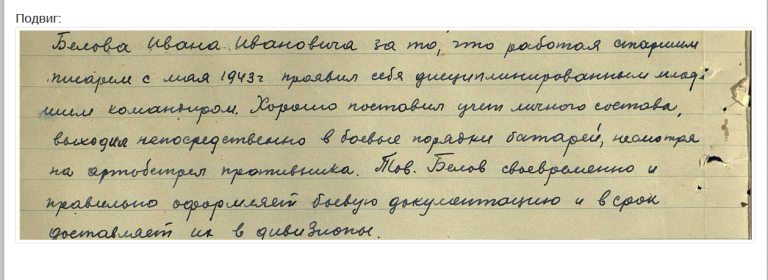 Подвиг:
Белова Ивана Ивановича за то, что работая старшим
писарем с мая 1943г проявил себя дисциплинированным млад-
шим командиром. Хорошо поставил учет личного состава,
выходил непосредственно в боевые порядки батарей, несмотря
на артобстрел противника. Тов. Белов своевременно и
правильно оформляет боевую документацию и в срок
доставляет их в дивизионы.